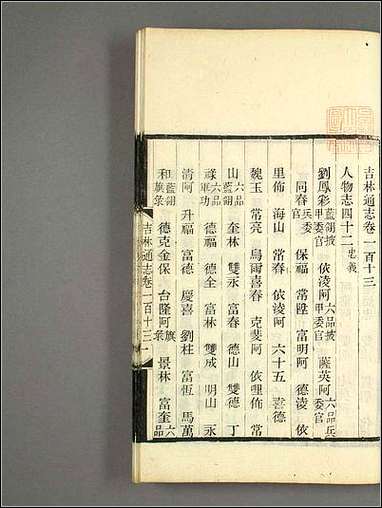 吉林通志卷一百十三
人物志四十二 忠義
劉鳳彩 藍翎披甲委官 依淩阿 六品披甲委官 薩英阿 六品兵委官
同春 兵委官 保福 常陞 富明阿 德淩 依
里佈 海山 常春 依淩阿 六十五 喜德
魏玉 常亮 烏爾喜春 克斐阿 依里佈 常
山 六品藍翎 奎林 雙永 富春 德山 雙德 丁
祿 六品軍功 德福 德全 富林 雙成 明山 永
清阿 升福 富德 慶喜 劉柱 富恆 馬萬
和 藍翎旗彖 德克金保 台隆阿 旗彖 景林 富奎 六品
吉林通志卷一百十三 一